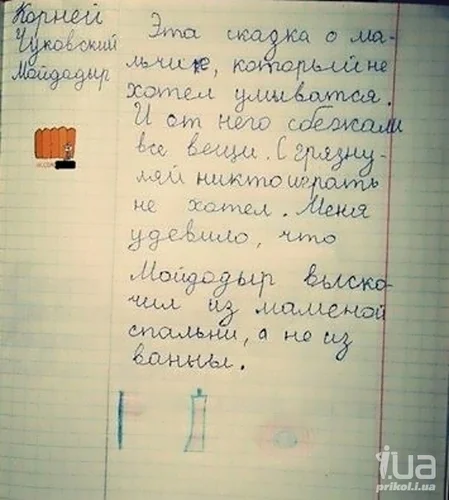 Корней
Чуковский
Мойдодыр
Эта скадка о ма-
льчике, который не
хотел умыватся.
И от него сбежали
все вещи. С грязну-
ляй никто играть
не хотел. Меня
удевило, что
Мойдодыр выско-
чил из маменой
спальни, а не из
ванны.
i.ua
prikol.i.ua